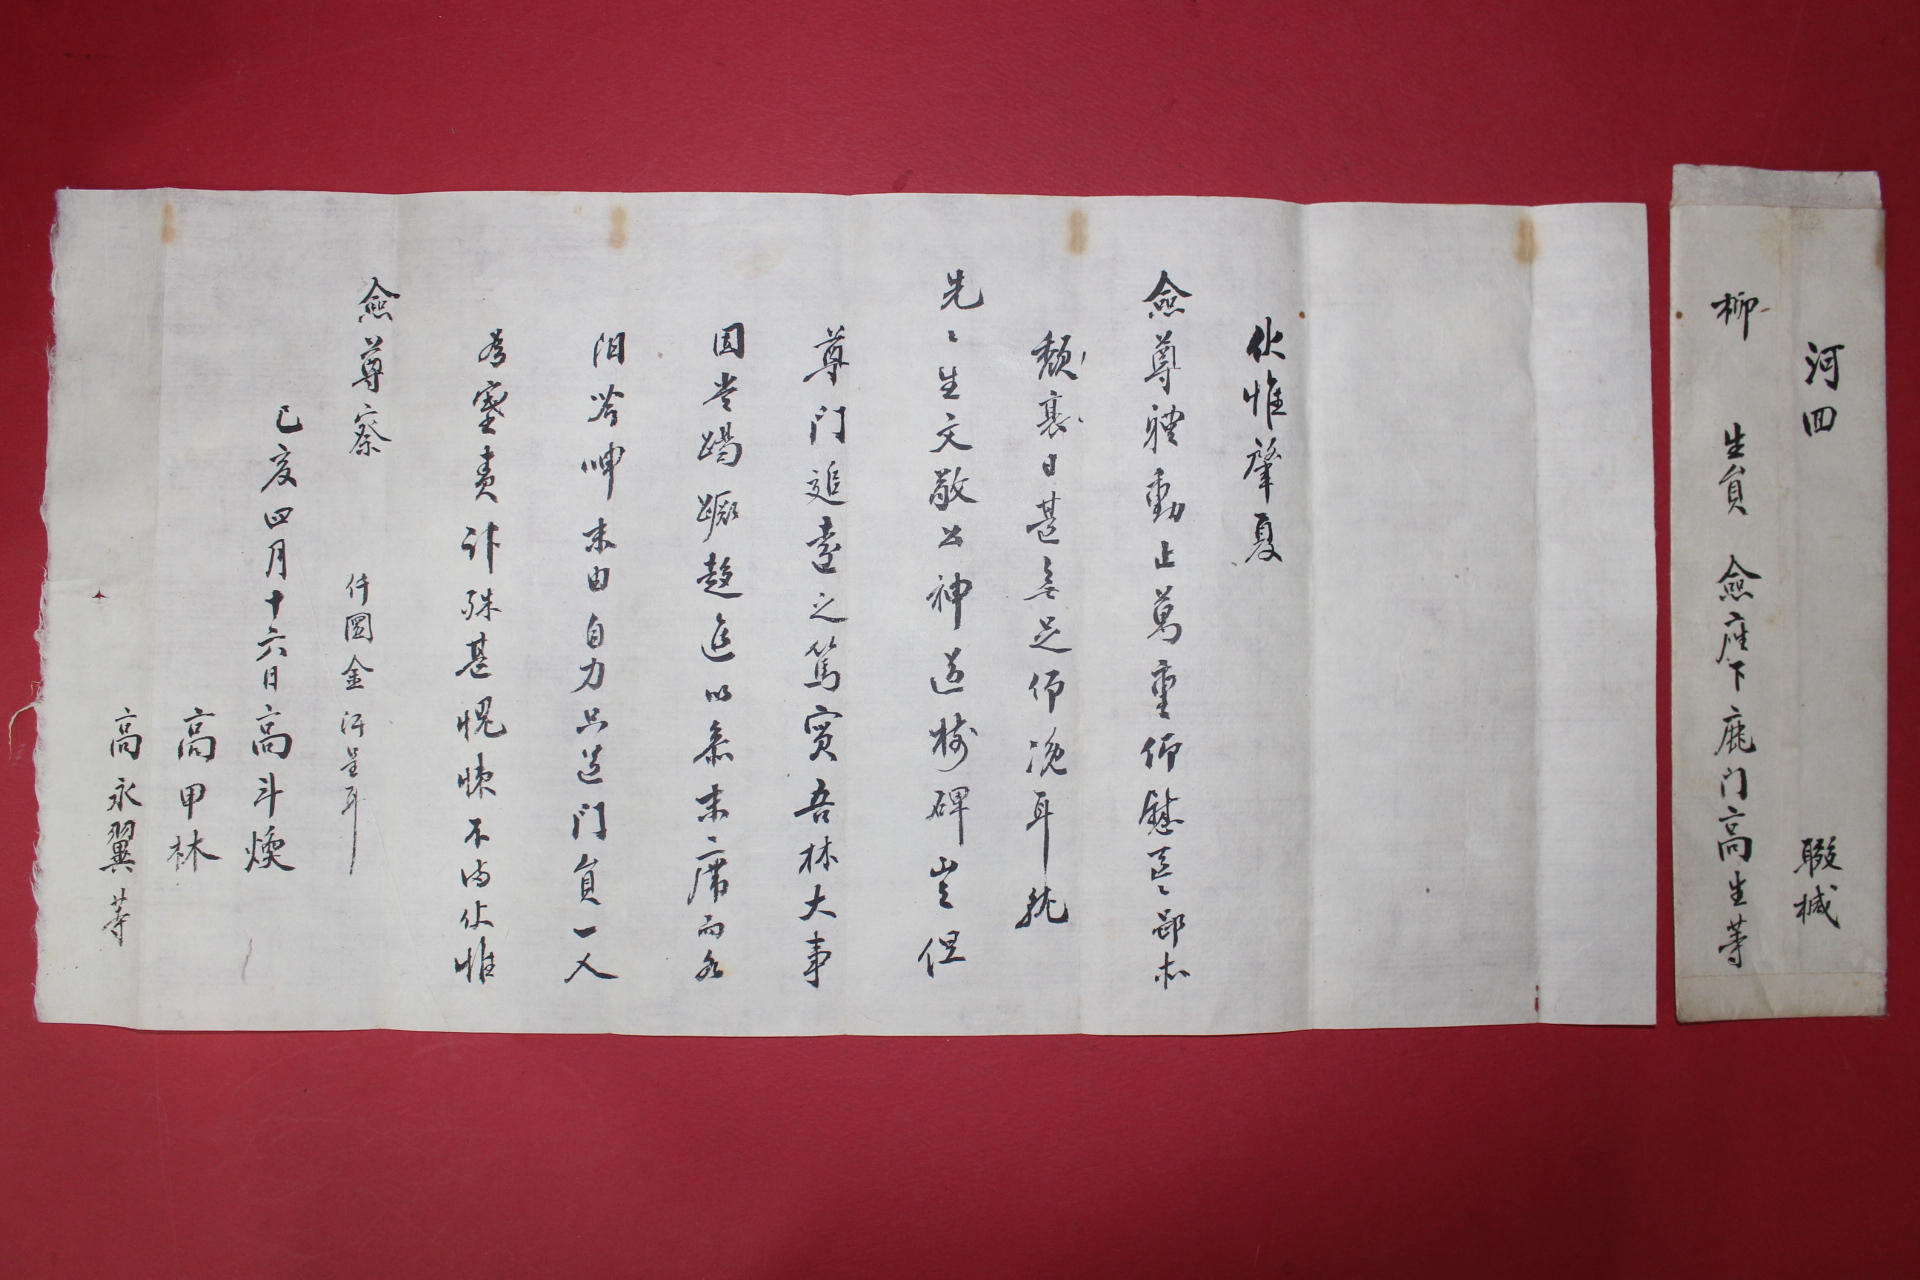 河回
柳 生員 僉座下 鹿門高生等
謹椷
伏惟肇夏
僉尊體動止萬重仰慰區〻鄙等
頹衰日甚無足仰浼耳就
先〻生文敬公神道樹碑豈但
尊門追遠之篤實吾林大事
固當竭蹶趨進以參末席而身
阻 呻末由自力只送門員一人
塞責計殊甚愧悚不備伏惟
僉尊察
仟圜金 呈耳
己亥四月十六日高斗煥
高甲林
高永翼等